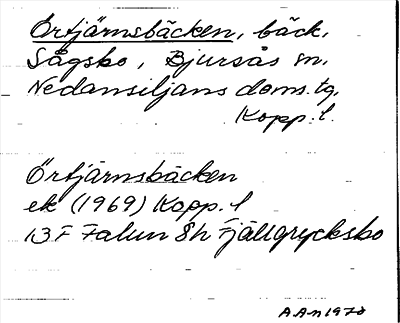 Örtjärnsbäcken, bäck,
Sågsbo, Bjursås sn,
Nedansiljans doms. tg,
Kopp. l.
Örtjärnsbäcken
ek (1969) Kopp. l
13 F Falun 8h Fjällgrycksbo
A.An 1970